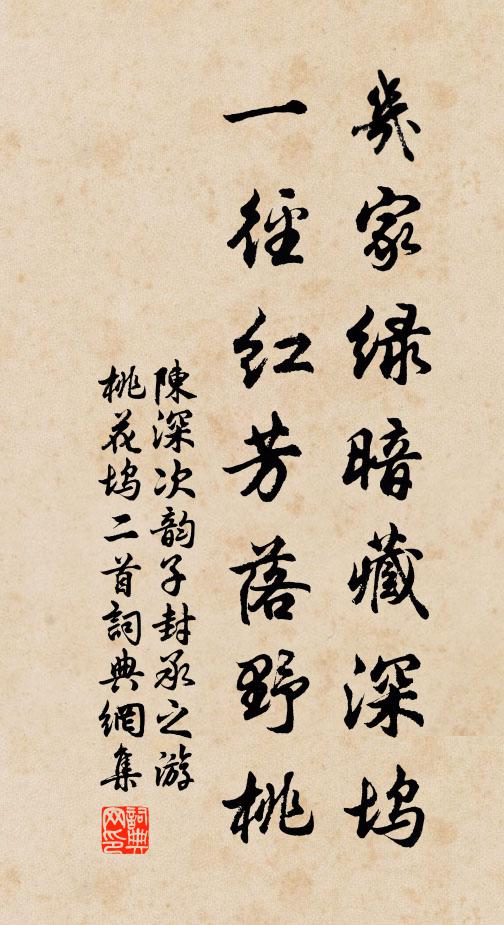 幾家緑暗藏深塢
一徑紅芳落野桃
陳深次韵子封承之游
桃花塢二首詞典網集
詞典
网印